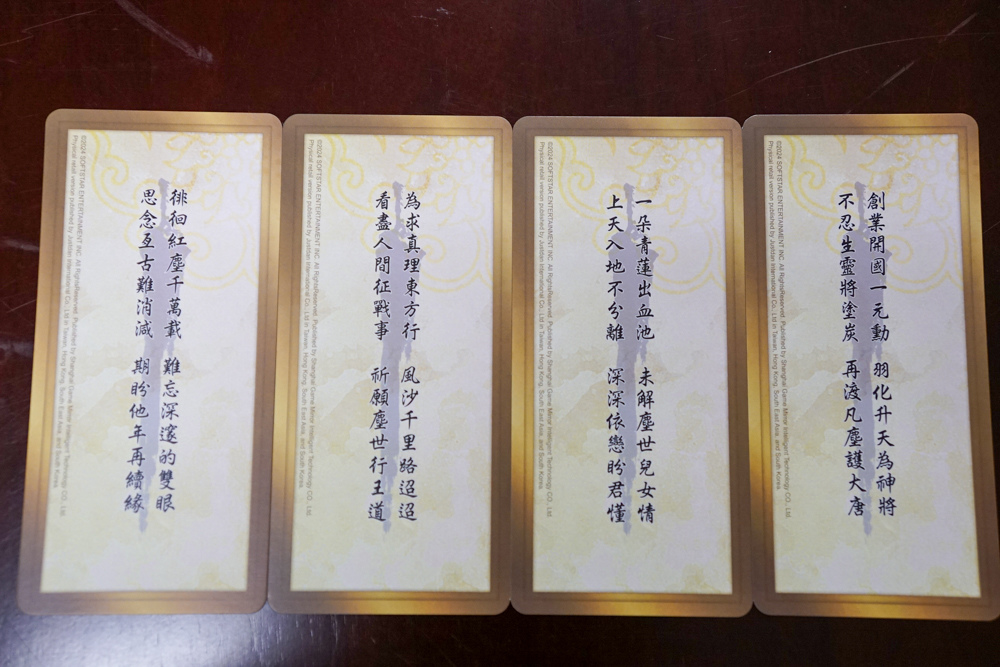 創業開國一元勳 羽化升天為神將
不忍生靈將塗炭 再渡凡塵護大唐
©2024 SOFTSTAR ENTERTAINMENT INC. All RightsReserved. Published by Shanghai Game Mirror Intelligent Technology CO., Ltd.
Physical retail version published by Justdan International Co., Ltd in Taiwan, Hong Kong, South East Asia, and South Korea.
一朵青蓮出血池 未解塵世兒女情
上天入地不分離 深深依戀盼君懂
©2024 SOFTSTAR ENTERTAINMENT INC. All RightsReserved. Published by Shanghai Game Mirror Intelligent Technology CO., Ltd.
Physical retail version published by Justdan International Co., Ltd in Taiwan, Hong Kong, South East Asia, and South Korea.
為求真理東方行 風沙千里路迢迢
看盡人間征戰事 祈願塵世行王道
©2024 SOFTSTAR ENTERTAINMENT INC. All RightsReserved. Published by Shanghai Game Mirror Intelligent Technology CO., Ltd.
Physical retail version published by Justdan International Co., Ltd in Taiwan, Hong Kong, South East Asia, and South Korea.
徘徊紅塵千萬載 難忘深邃的雙眼
思念亙古難消減 期盼他年再續緣
©2024 SOFTSTAR ENTERTAINMENT INC. All RightsReserved. Published by Shanghai Game Mirror Intelligent Technology CO., Ltd.
Physical retail version published by Justdan International Co., Ltd in Taiwan, Hong Kong, South East Asia, and South Korea.